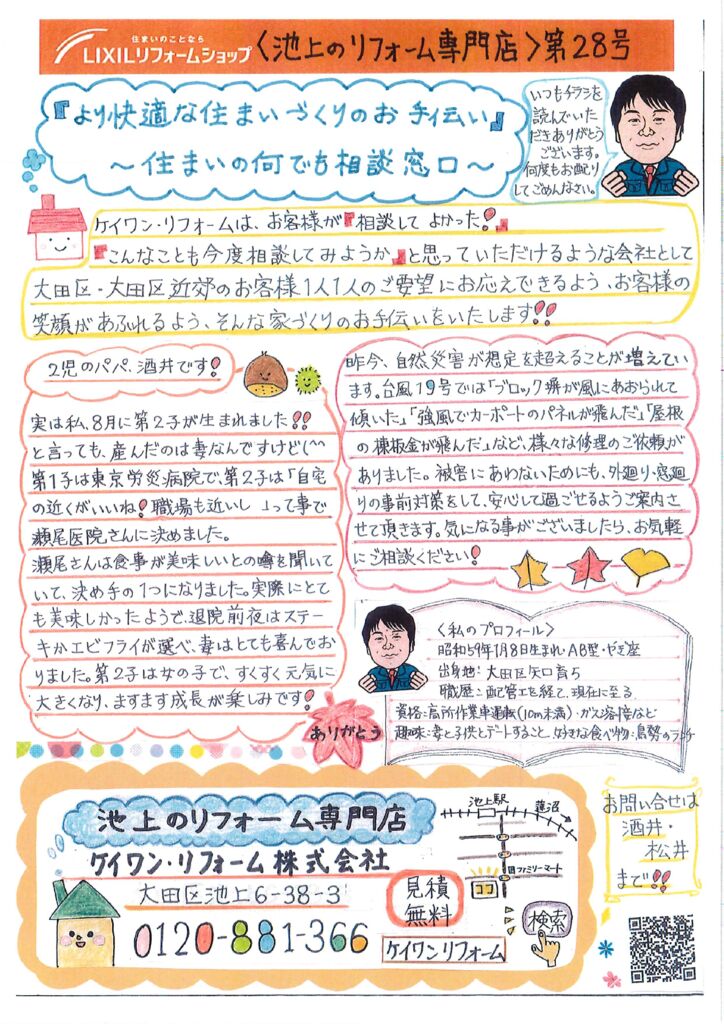 住まいのことなら
LIXILリフォームショップ〈池上のリフォーム専門店〉第28号
『より快適な住まいづくりのお手伝い』
～住まいの何でも相談窓口～
いつもチラシを
読んでいた
だきありがとう
ございます。
何度もお配り
してごめんなさい。
ケイワン・リフォームは、お客様が『相談してよかった!』
『こんなことも今度相談してみようか』と思っていただけるような会社として
大田区・大田区近郊のお客様1人1人のご要望にお応えできるよう、お客様の
笑顔があふれるよう、そんな家づくりのお手伝いをいたします!!
2児のパパ、酒井です!
実は私、8月に第2子が生まれました!!
と言っても、産んだのは妻なんですけど(^^
第1子は東京労災病院で、第2子は「自宅
の近くがいいね!職場も近いし」って事で
瀬尾医院さんに決めました。
瀬尾さんは食事が美味しいとの噂を聞いて
いて、決め手の1つになりました。実際にとて
も美味しかったようで、退院前夜はステー
キかエビフライが選べ、妻はとても喜んでお
りました。第2子は女の子で、すくすく元気に
大きくなり、ますます成長が楽しみです!
ありがとう
昨今、自然災害が想定を超えることが増えてい
ます。台風19号では「ブロック塀が風にあおられて
傾いた」「強風でカーポートのパネルが飛んだ」「屋根
の棟板金が飛んだ」など、様々な修理のご依頼が
ありました。被害にあわないためにも、外廻り・窓廻
りの事前対策をして、安心して過ごせるようご案内さ
せて頂きます。気になる事がございましたら、お気軽
にご相談ください!
〈私のプロフィール〉
昭和59年1月8日生まれ・AB型・やぎ座
出身地:大田区矢口育ち
職歴:配管工を経て、現在に至る
資格:高所作業車運転(10m未満)・ガス溶接など
趣味:妻と子供とデートすること 好きな食べ物:鳥勢のランチ
池上のリフォーム専門店
ケイワン・リフォーム株式会社
大田区池上6-38-3
0120-881-366
見積
無料
池上駅
蓮沼
ファミリーマート
ココ
検索
ケイワンリフォーム
お問い合せは
酒井・
松井
まで!!